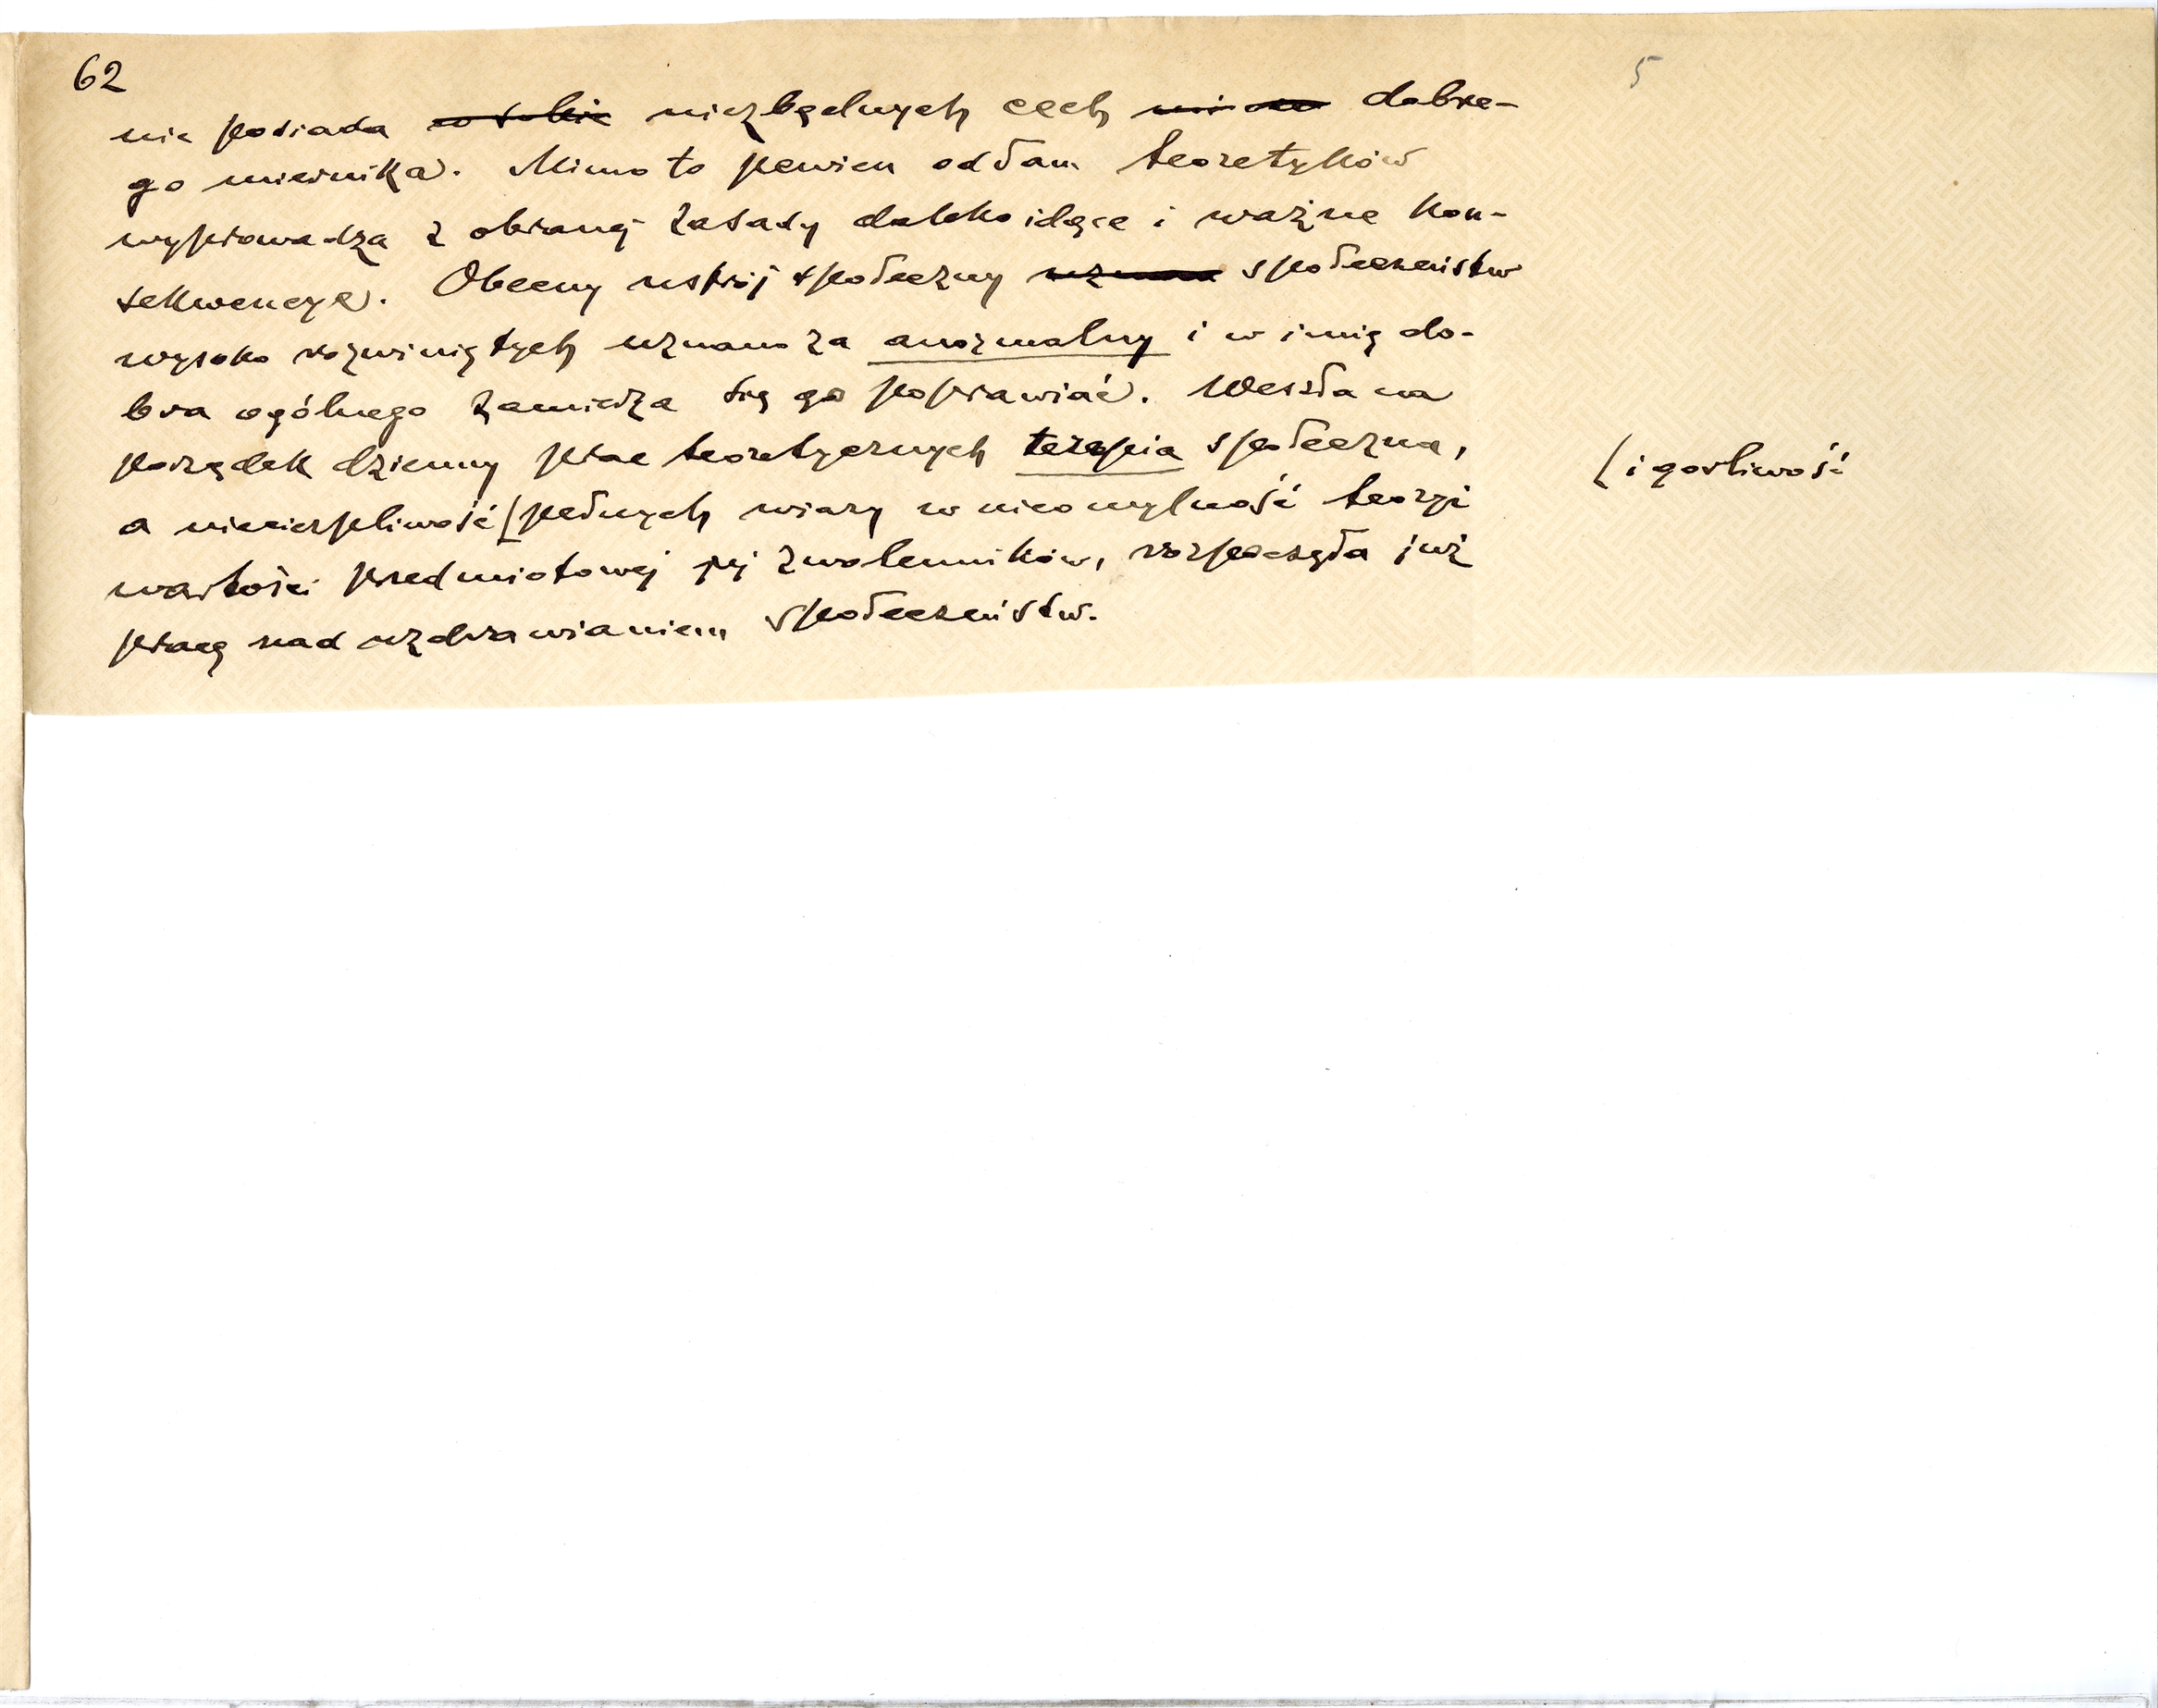 62
5
nie posiada w sobie niezbędnych cech dobre-
go miernika. Mimo to pewien odłam teoretyków
wyprowadza z obranej zasady daleko idące i ważne kon-
sekwencye. Obecny ustrój społeczny uznano społeczeństw
wysoko rozwiniętych uznano za anormalny i w imię do-
bra ogólnego zamierza się go poprawiać. Weszła na
porządek dzienny prac teoretycznych terapia społeczna,
[i gorliwość
a niecierpliwość [pełnych wiary w nieomylność teoryi
wartości przedmiotowej jej zwolenników, rozpoczęła już
pracę nad uzdrawianiem społeczeństw.